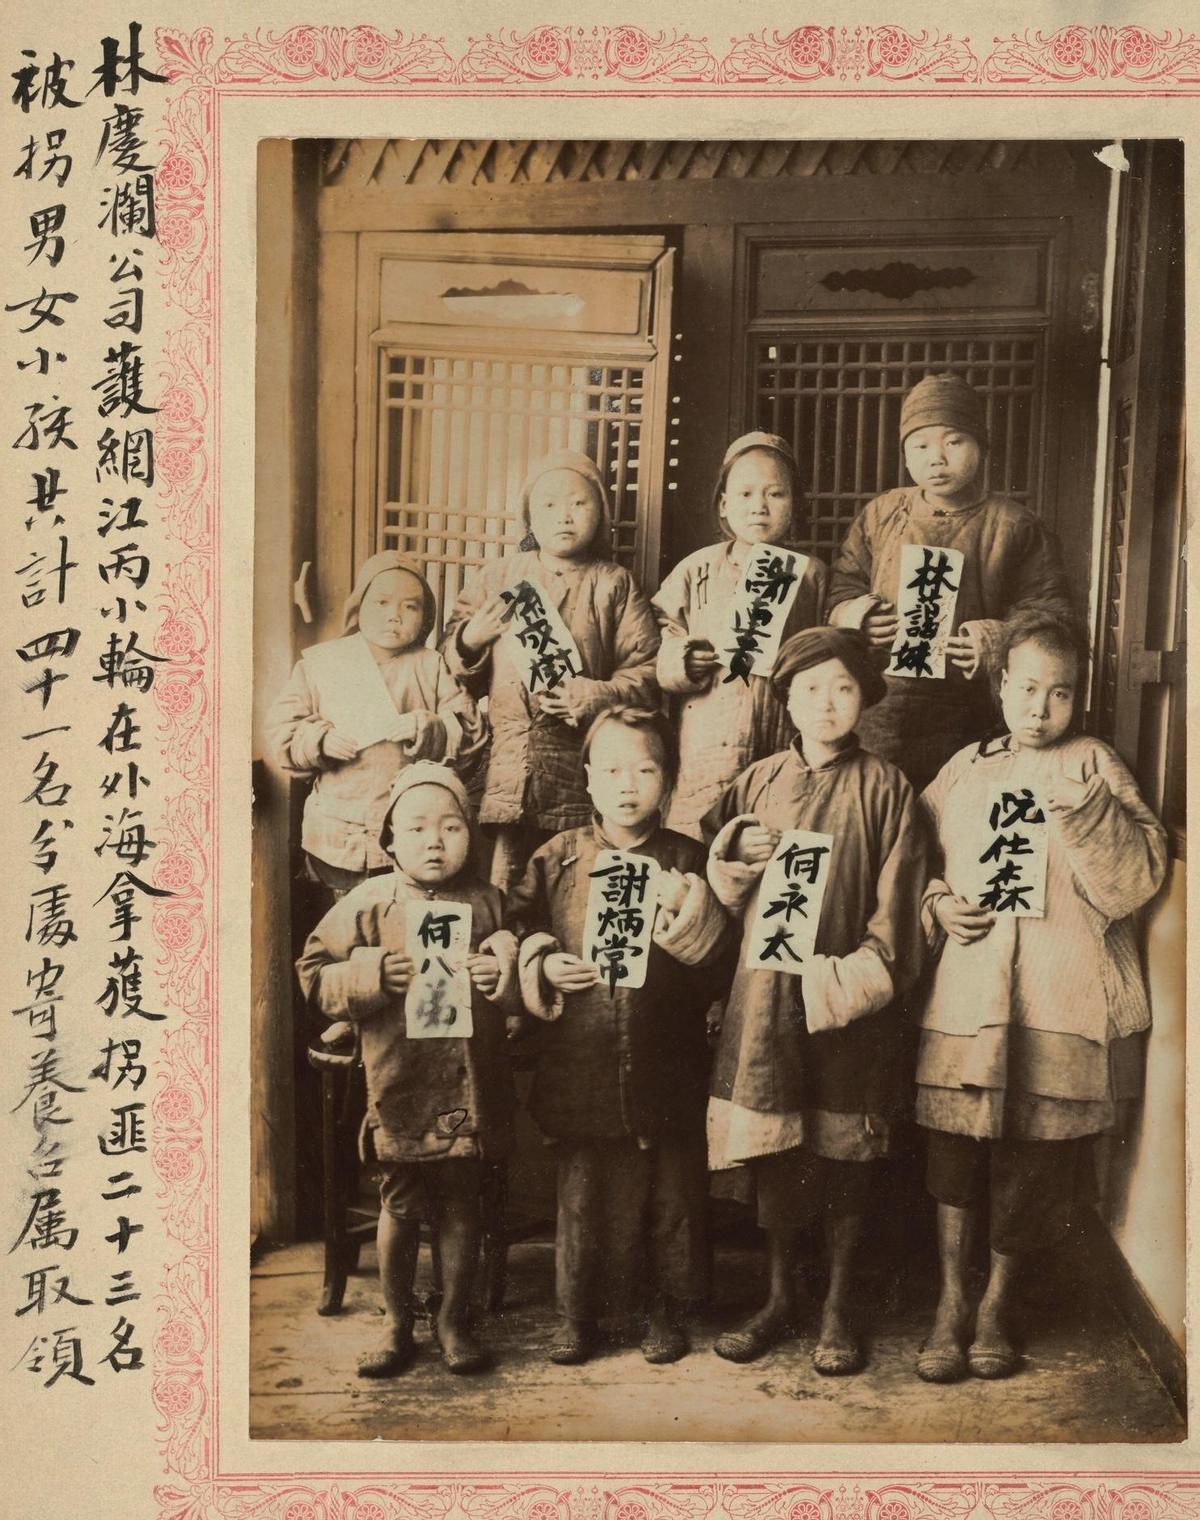 林慶瀾公司護網江丙小輪在外海拿獲拐匪二十三名
被拐男女小孩共計四十一名分處寄養名属取領
林謁妹
謝連貴
成樹
阮仕森
何永太
謝炳常
何八弟